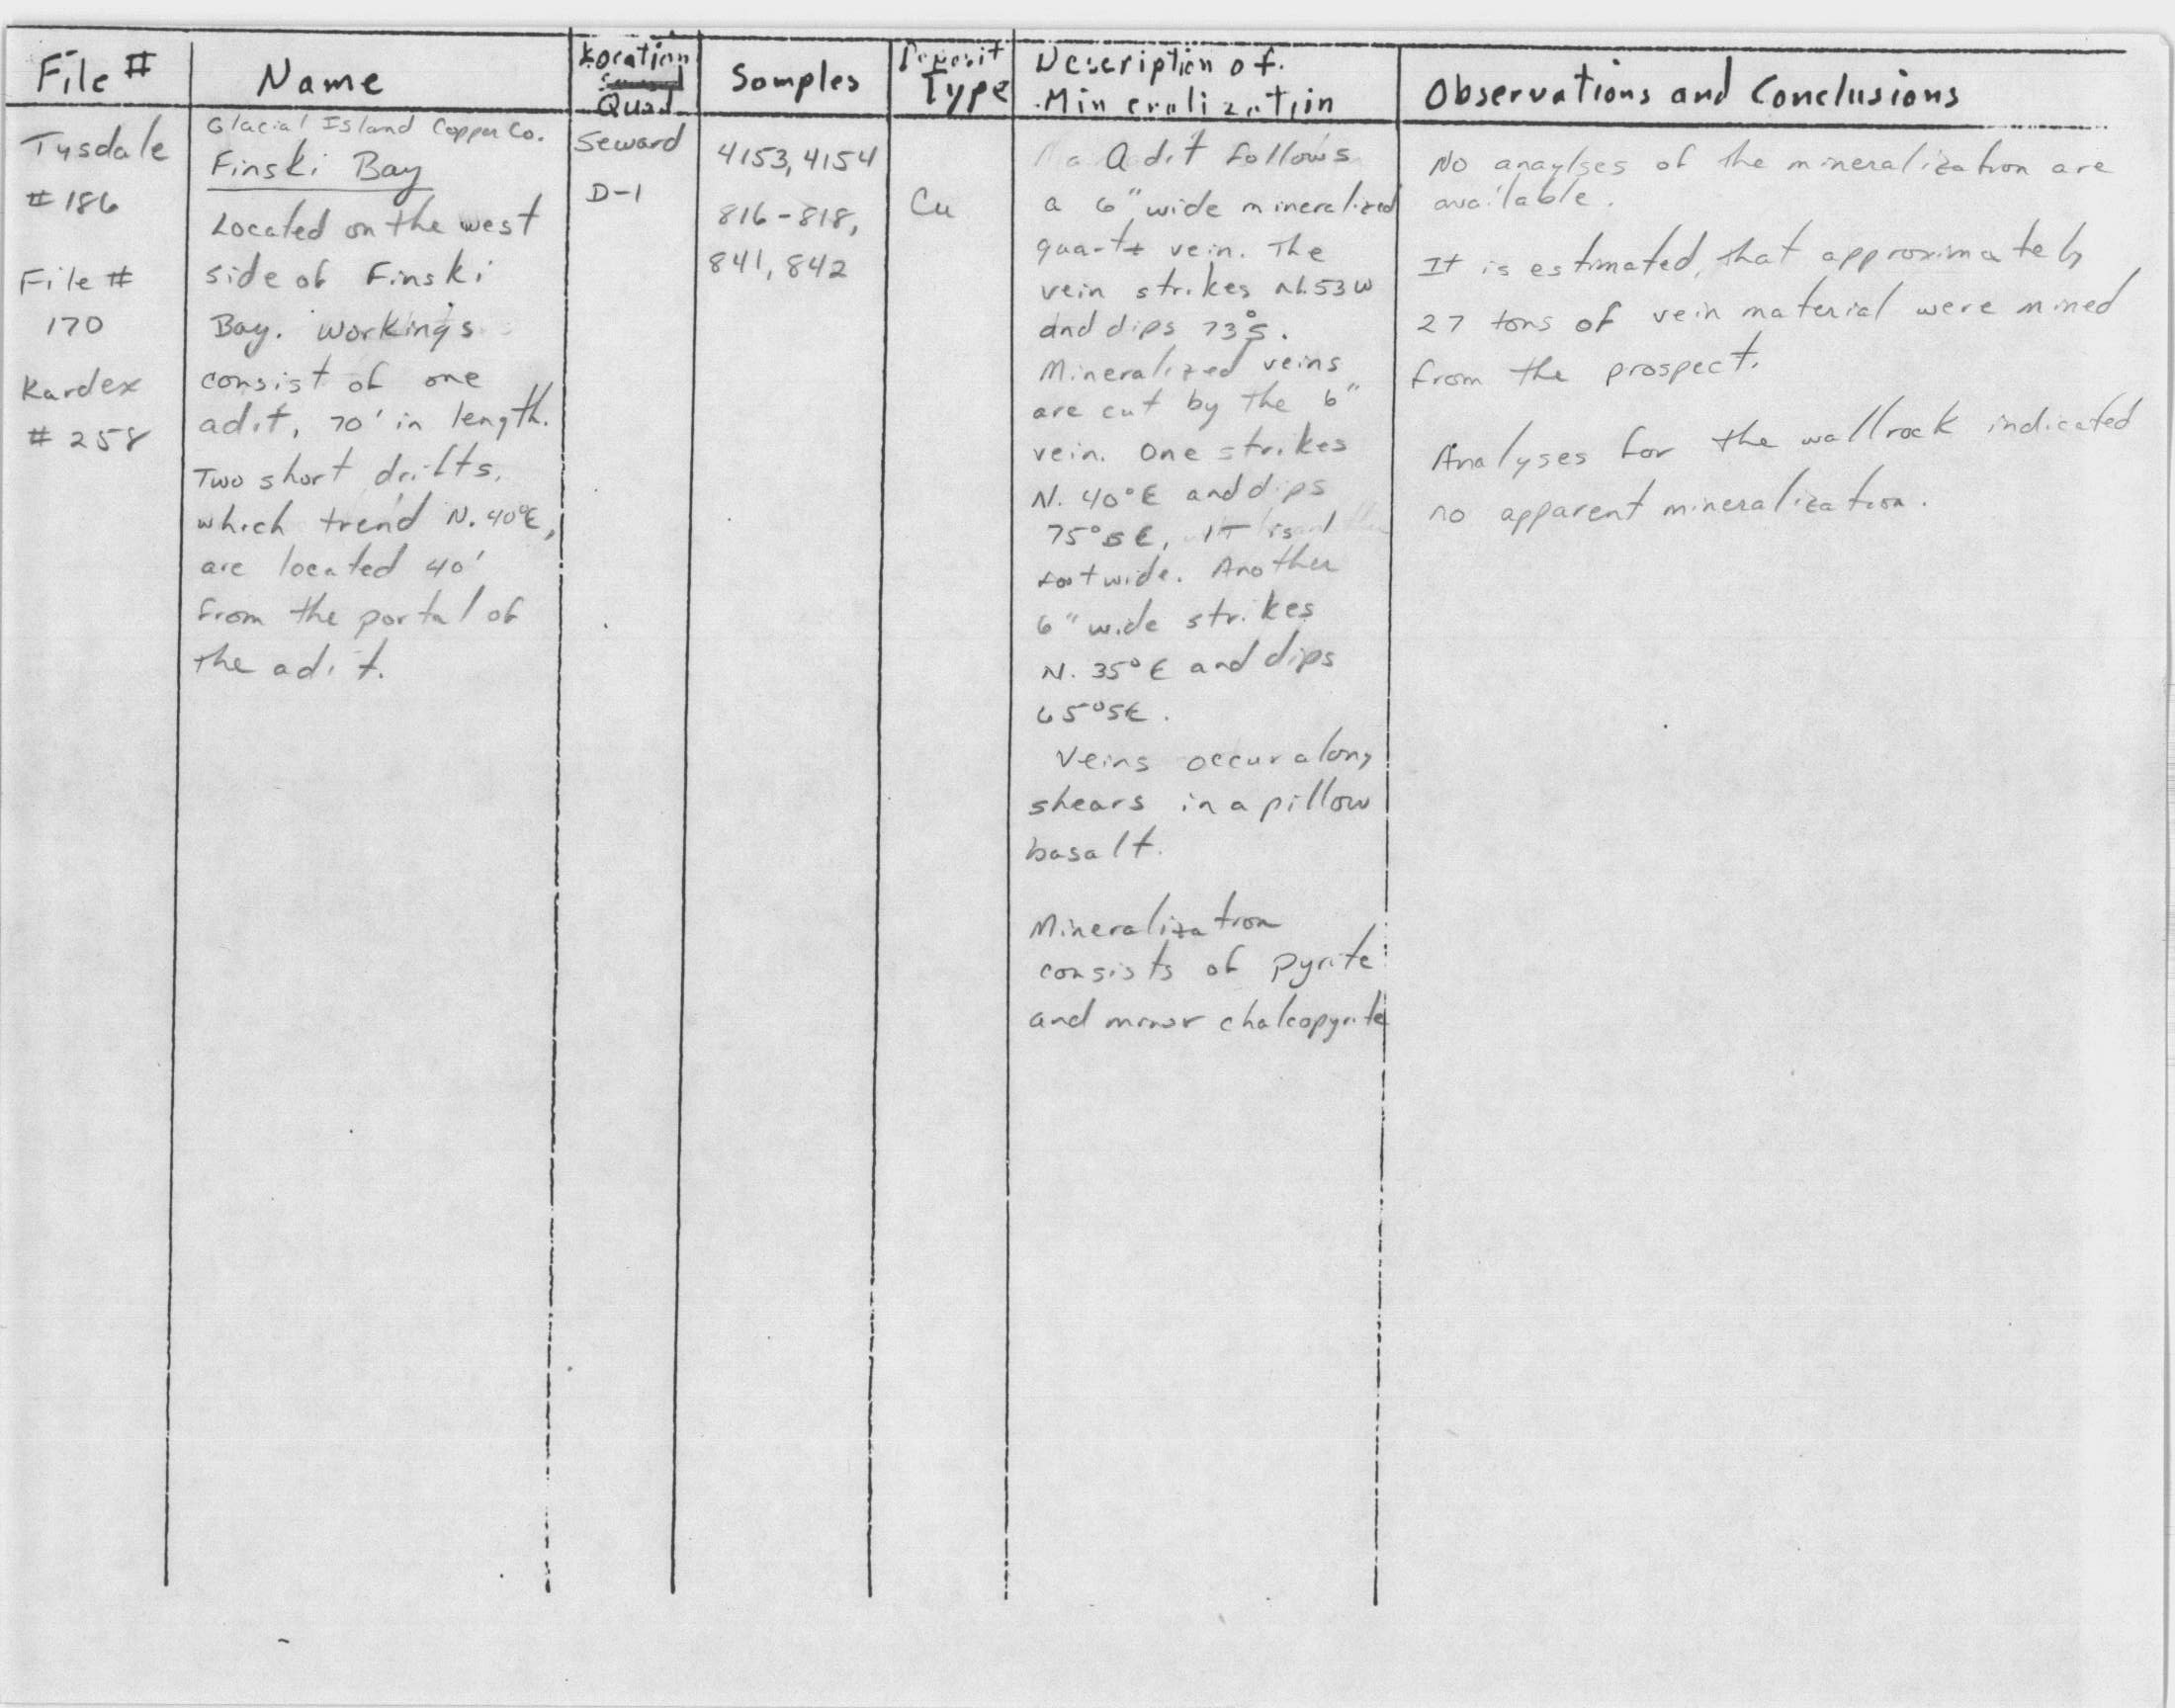 File #
Name
Location
Quad
Samples
Deposit
Type
Description of
Mineralization
Observations and Conclusions
Tysdale
# 186
File #
170
Kardex
# 258
Glacial Island Copper Co.
Finski Bay
Located on the west
side of Finski
Bay. Workings
consist of one
adit, 70' in length.
Two short drifts,
which trend N. 40°E,
are located 40'
from the portal of
the adit.
Seward
D-1
4153, 4154
816-818,
841, 842
Cu
Adit follows
a 6" wide mineralized
quartz vein. The
vein strikes N.53W
and dips 73°S.
Mineralized veins
are cut by the 6"
vein. One strikes
N. 40°E and dips
75°SE, IT is 1
foot wide. Another
6" wide strikes
N. 35°E and dips
65°SE.
Veins occur along
shears in a pillow
basalt.
Mineralization
consists of pyrite
and minor chalcopyrite
No anaylses of the mineralization are
available.
It is estimated, that approximately
27 tons of vein material were mined
from the prospect.
Analyses for the wallrock indicated
no apparent mineralization.